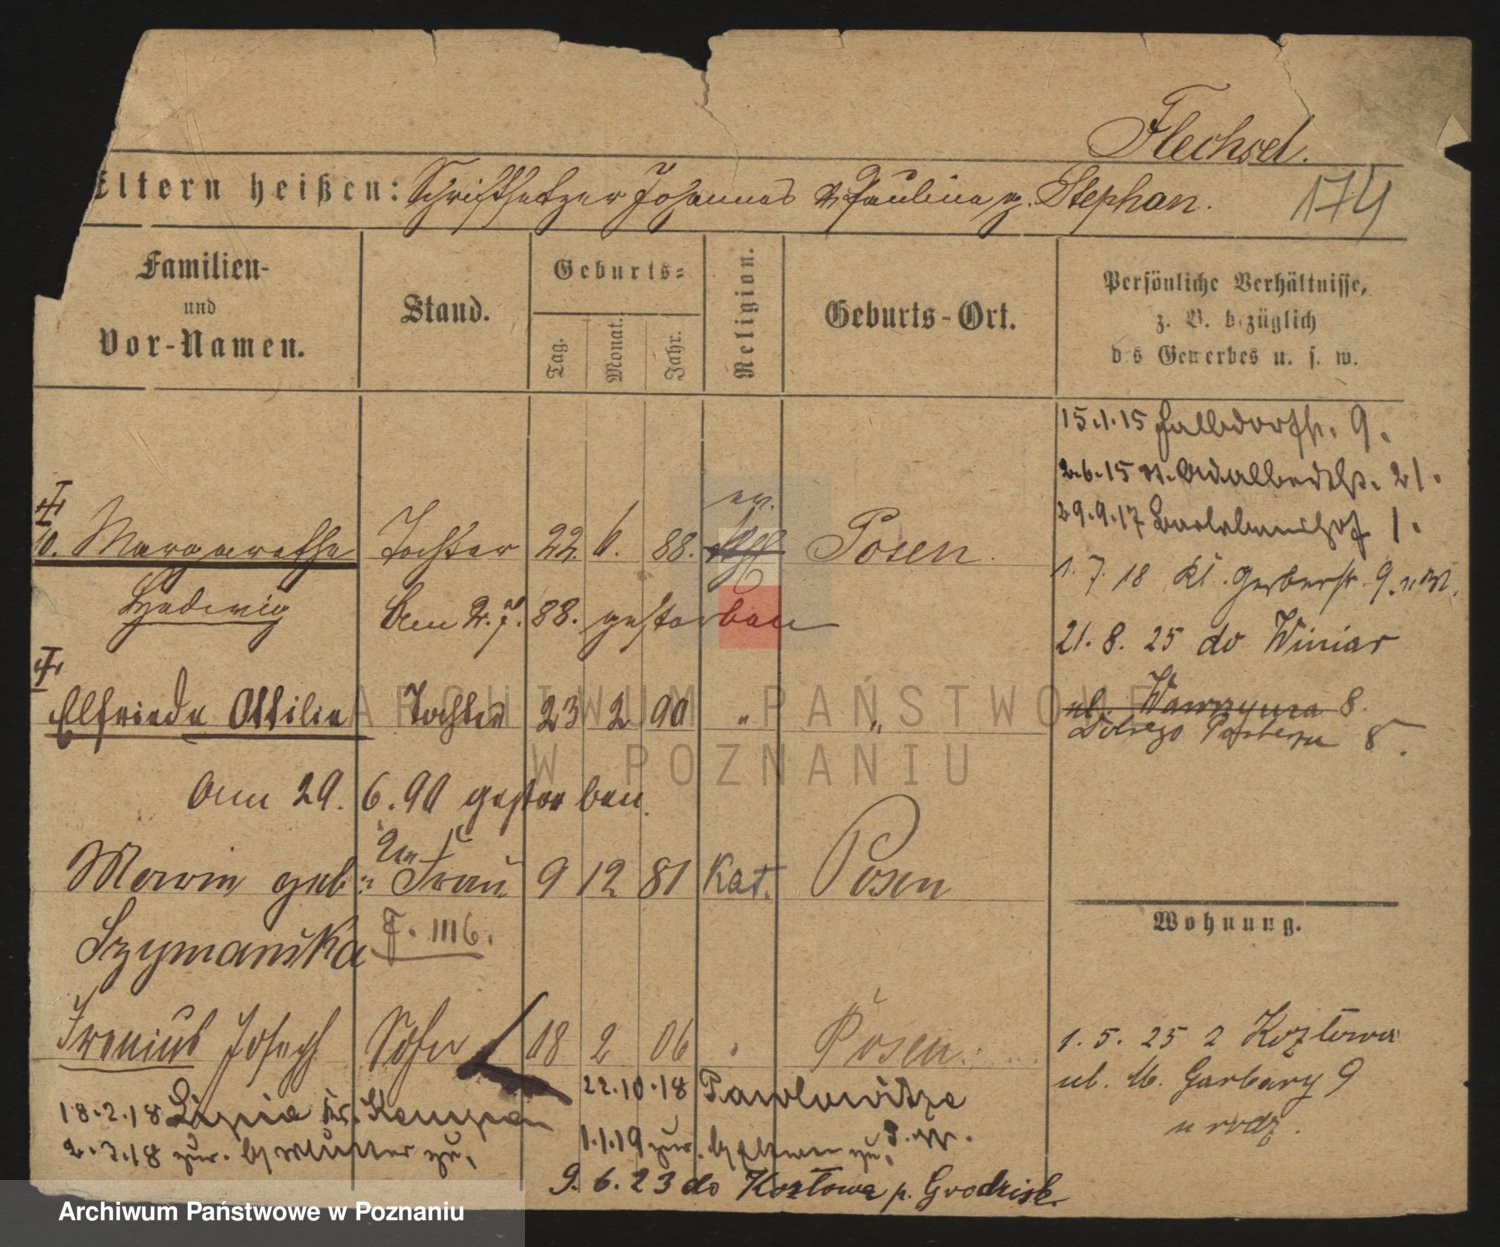 Flechsel.
Eltern heißen: Schriftsetzer Johannes & Paulina g. Stephan.
174
Familien-
und
Vor-Namen.
Stand.
Geburts-
Tag.
Monat.
Jahr.
Religion.
Geburts-Ort.
Persönliche Verhältnisse,
z. B. bezüglich
des Gewerbes u. s. w.
15.1.15 9.
2.6.15 St. Adalbertstr. 21.
29.9.17 1.
1.7.18 Kl. Gerberstr. 9.
21.8.25 do Winiar
ul. Wawrzyńca 8.
Dobrego Pasterza 8.
ev.
10. Margarethe Tochter 22. 6. 88. Posen.
Hedwig Am 2. 7. 88. gestorben
Elfriede Ottilie Tochter 23 2 90 " "
Am 29. 6. 90 gestorben.
Maria geb: Frau 9 12 81 Kat. Posen
Szymańska F. 1116.
Wohnung.
Irenius Joseph Sohn 18 2 06 " Posen.
1. 5. 25 z Kozłowa
ul. M. Garbary 9
u rodz.
22.10.18 Pawlowitze
18.2.18 Kr. Kempen
1.1.19 zur. b/ Eltern zu.
2.3.18 zur. b/ Mutter zu.
9. 6. 23 do Kozłowa p. Grodzisk
ARCHIWUM PAŃSTWOWE
W POZNANIU
Archiwum Państwowe w Poznaniu